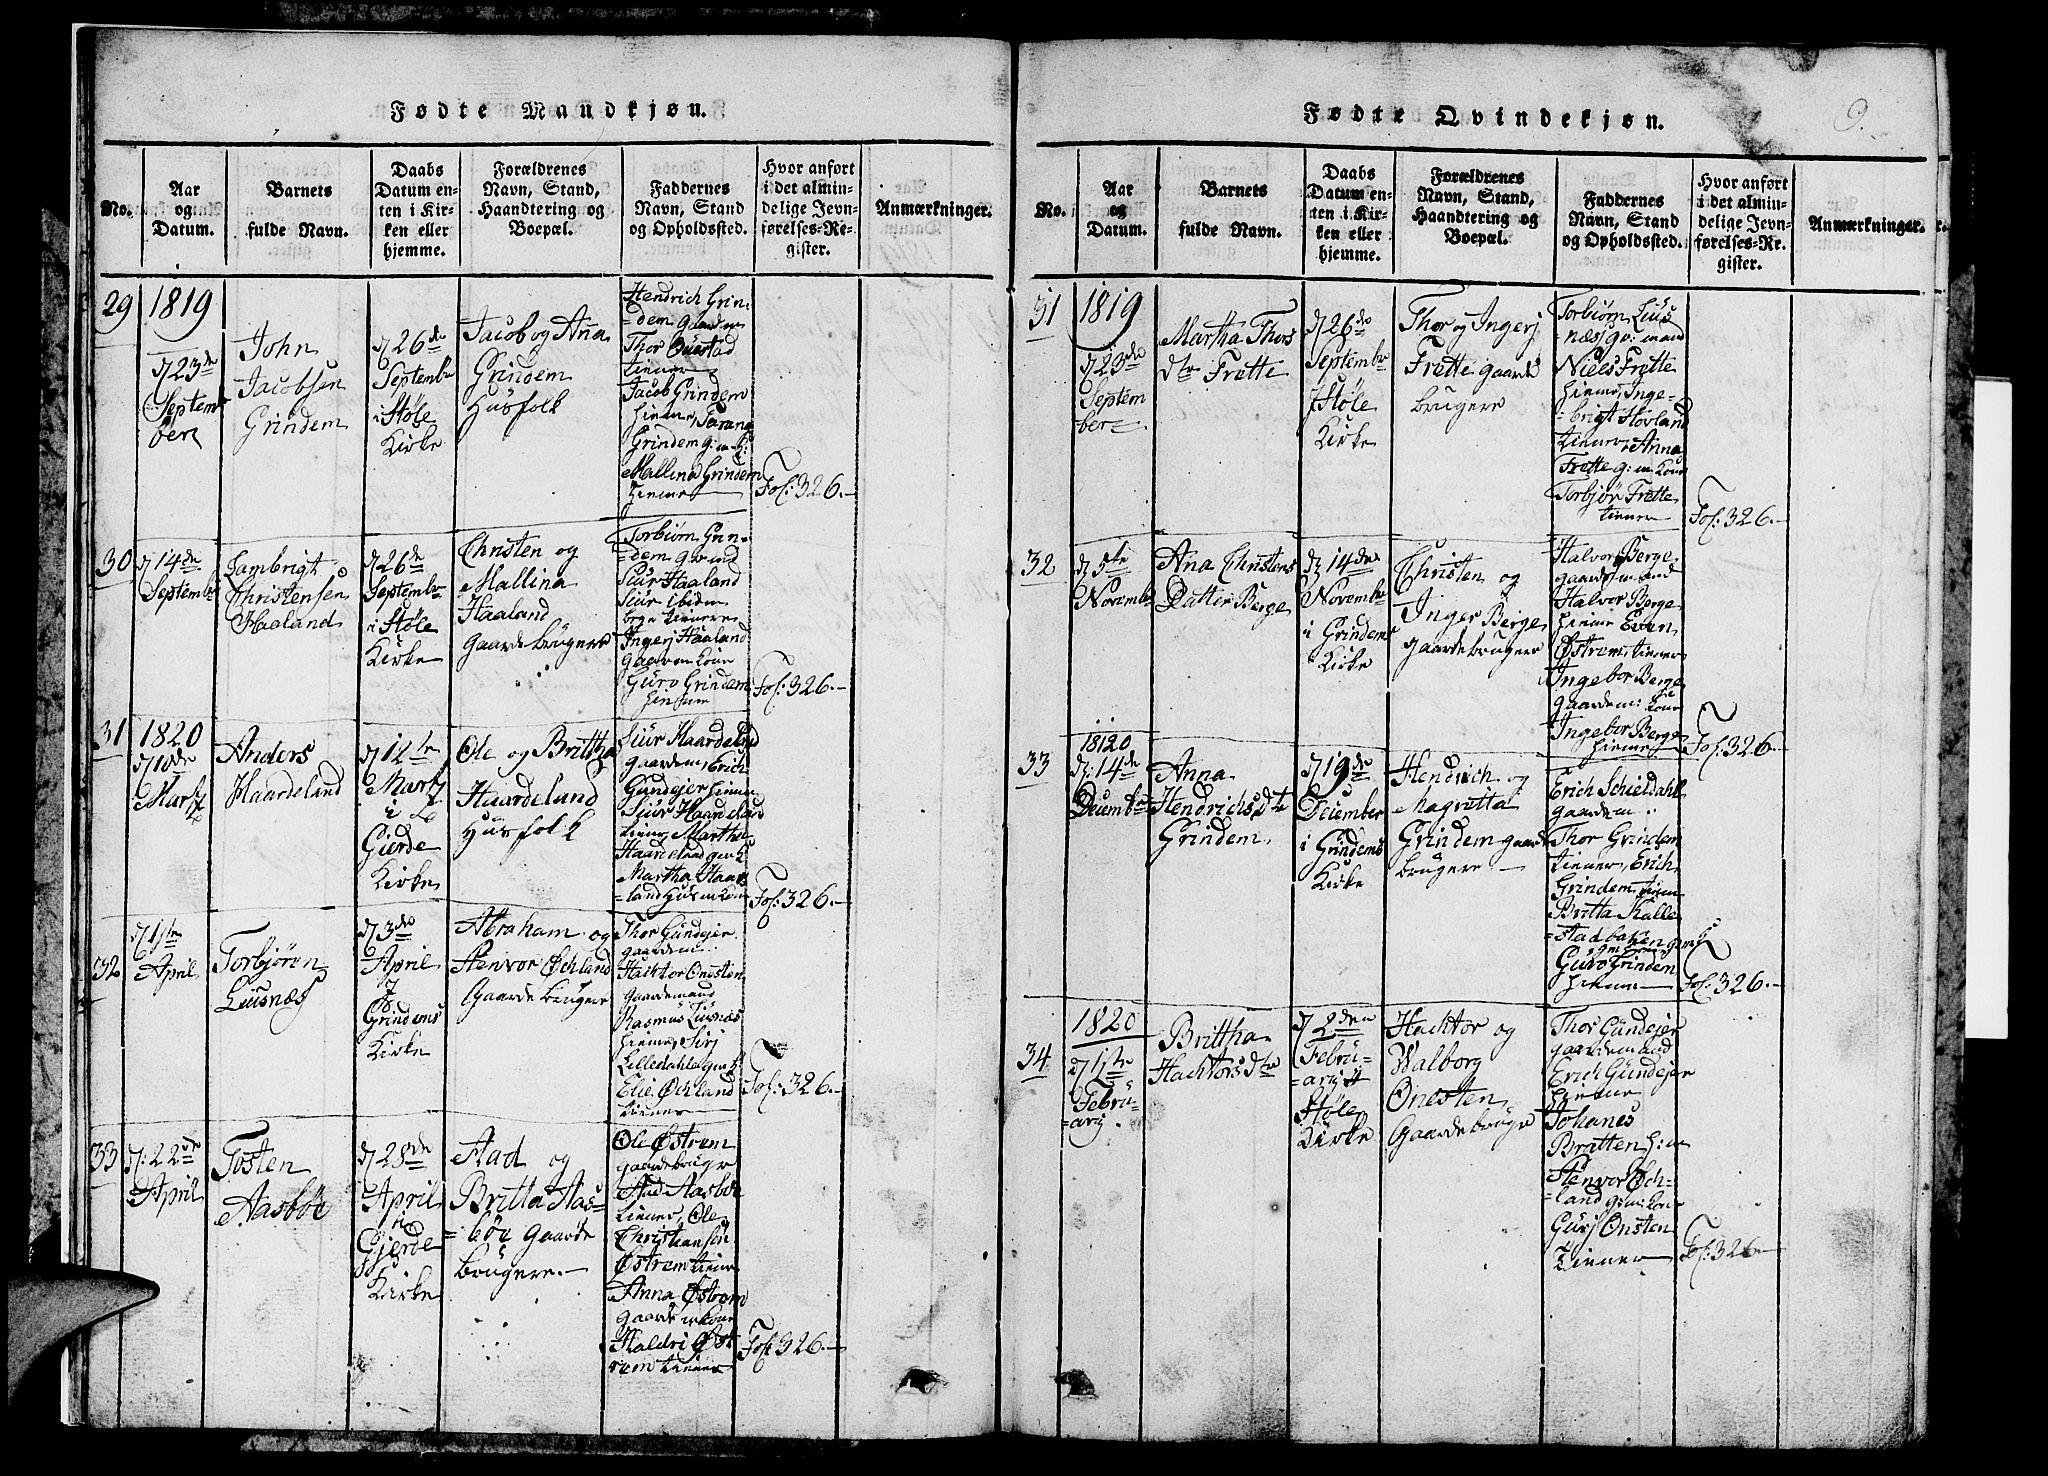 Fødte Mandkjøn.
No.
Aar
og
Datum.
Barnets
fulde Navn.
Daabs
Datum en-
ten i Kir-
ken eller
hjemme.
Forældrenes
Navn, Stand,
Haandtering og
Boepæl.
Faddernes
Navn, Stand
og Opholdssted.
Hvor anført
i det almin-
delige Jevn-
førelses-Re-
gister.
Anmærkninger.
29
1819
d 23de
Septem
ber
John
Jacobsen
Grindem
d 26de
Septembr
i Støle
Kirke
Jacob og Ana
Grindem
Husfolk
Hendrich Grin-
=dem gaardm
Thor Ouestad
tiener
Jacob Grindem
hieme,
Grindem g: m k:
Mallina Grindem
hieme
Fol: 326.-
30
d 14de
Septembr
Lambrigt
Christensen
Haaland
d 26de
Septembr
i Støle
Kirke
Christen og
Mallina
Haaland
gaardebrugere
Torbiørn Grin-
=dem g
Siur Haaland
Siur ibidem
begge tienere
Ingerj Haaland
gaardm kone
Guro Grindem
hieme
Fol: 326.-
31
1820
d 10de
Marty
Anders
Haardeland
d 12te
Marty
i
Gierde
Kirke
Ole og Brittha
Haardeland
Husfolk
Siur Haardeland
gaardem, Erich
Gundejer hieme
Siur Haardeland
tiener, Martha
Haardeland gm k
Martha Haar
=land Husm kone
Fol: 326.-
32
d 1ste
April
Torbjøren
Liusnæs
d 3de
April
J
Grindems
Kirke
Abraham og
Stenvor Øchland
Gaardebrugere
Thor Gundejer
gaardem:
Hachtor Onesten
gaardemand
Rasmus Liusnæs
hieme, Sirj
Lilledahl gm k
Elie Øchland
tiener
Fol: 326.-
33
d: 22de
April
Tosten
Aasbøe
d 28de
April
i
Gjerde
Kirke
Aad og
Britta Aas-
=bøe Gaarde
brugere.-
Ole Østrem
gaardebrugr
Aad Aasbøe
tiener, Ole
Christiansen
Østrem tiener
Anna Østrem
gaardem kone
Haldri Øst
rem tiener
Fol: 326.-
Fødte Qvindekjøn.
9.
No.
Aar
og
Datum.
Barnets
fulde Navn.
Daabs
Datum en-
ten i Kir-
ken eller
hjemme.
Forældrenes
Navn, Stand,
Haandtering og
Boepæl.
Faddernes
Navn, Stand
og Opholdssted.
Hvor anført
i det almin-
delige Jevn-
førelses-Re-
gister.
Anmærkninger.
31
1819
d 23de
Septem
ber
Martha Thors
dtr Frette
d 26de
Septembr
J Støle
Kirke
Thor og Ingerj
Frette gaarde
brugere
Torbiørn Lius
næs go: mand
Niels Frette
hieme, Inge-
=brigt Hovland
tiener Anna
Frette g: m kone
Torbjør Frette
tiener
Fol: 326.-
32
d 5te
Novembr
Ana Christens
Datter Berge
d 14de
Novembr
i Grindems
Kirke
Christen og
Inger Berge
gaardebrugere
Halvor Berge
gaardemand
Halvor Berge
hieme Even
Østrem, tiener
Ingebor Berge
gaardem: kone
Ingebor Berge
hieme
Fol: 326.-
33
18120
d: 14de
Decembr
Anna
Hendrichsdtr
Grindem
d 19de
December
i Grindems
Kirke
Hendrich og
Magritta
Grindem gaarde
brugere
Erich Schieldahl
gaardem:
Thor Grindem
tiener, Erich
Grindem, tiener
Britta Kalle
=stadbaken
Guro Grindem
hieme
Fol: 326.-
34
1820
d 1ste
Febru-
=arj.
Brittha
Hachtorsdtr
d 2den
Febru-
=arj
Støle
Kirke
Hachtor og
Walborg
Onesten
Gaardebrugr
Thor Gundejer
gaardemand
Erich Gundejer
hieme
Johanes
Bratten h: m
Stenvor Øch-
=land g:m: kone
Gurj Onesten
tiener
Fol: 326.-